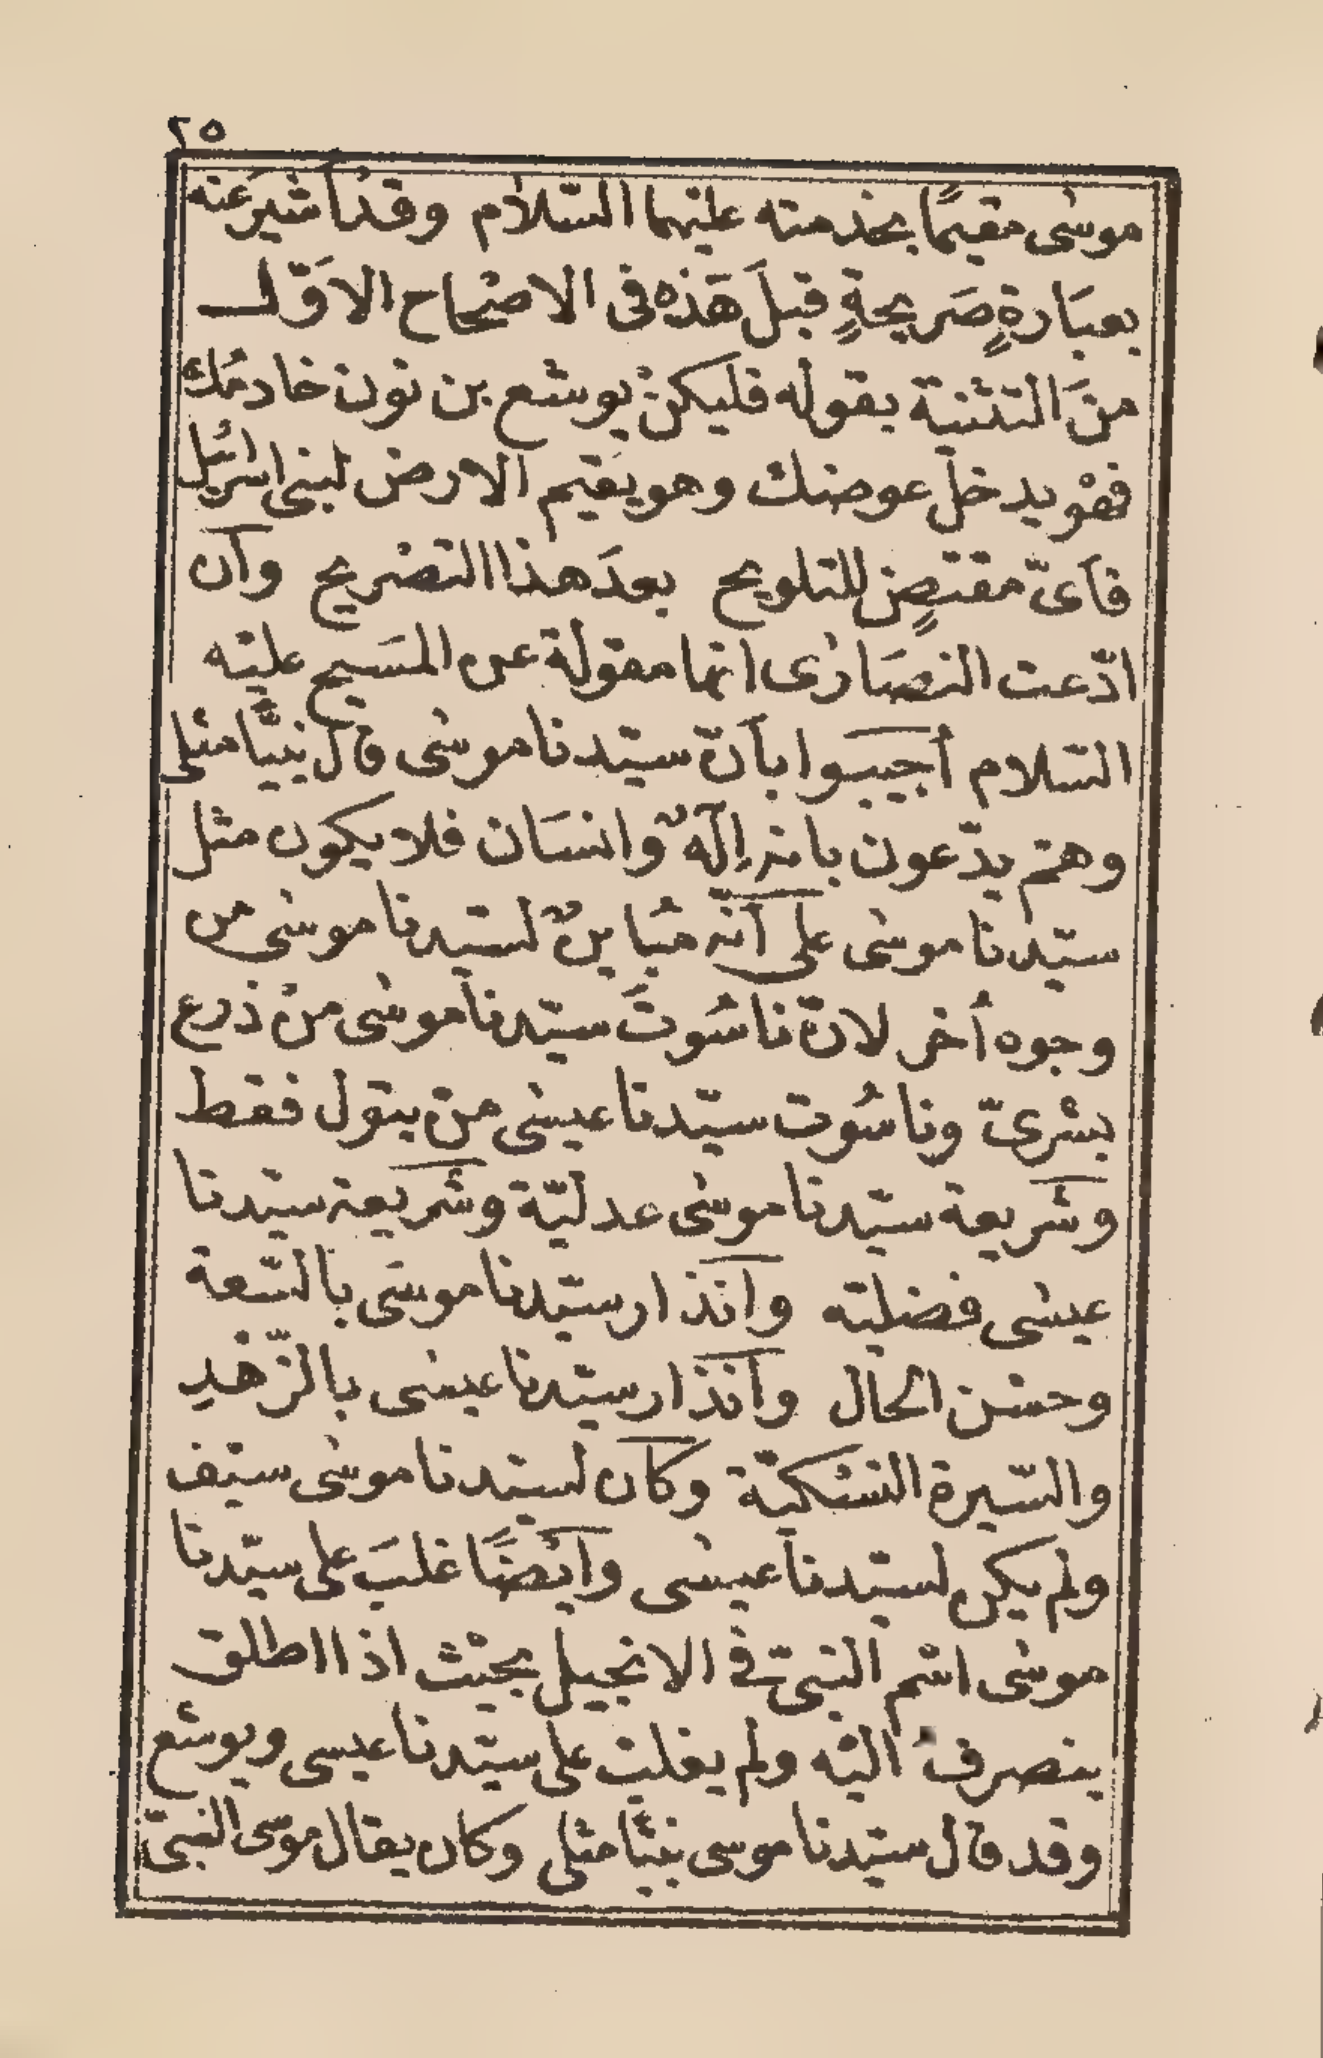 ٢٥
موسٰى مقيمًا بخدمته عليهما السّلام وقد اشير عنه
بعبَارةٍ صَريحةٍ قبلَ هَذه فى الاصْحاح الاوَّل
منَ التثنية بقوله فليكنْ يوشع بن نون خادمُك
فهْو يدخل عوضك وهو يقيم الارض لبنى اسرائيل
فاىّ مقتضٍ للتلويح بعدَ هذا التصْريح وان
ادّعت النصَارٰى انها مقولة عن المسَيح عليْه
السّلام أجيبوا بانّ سيّدنا موسٰى قال نبيًّا مثلى
وهم يدّعون بانه إلهٌ وانسَان فلا يكون مثل
سيّدنا موسٰى على انّه مُباينٌ لسيّدنا موسٰى من
وجوه أخر لانّ ناسُوتَ سيّدنا موسٰى منْ ذرع
بشْرىّ وناسُوت سيّدنا عيسٰى منْ بتول فقط
وشَريعة سيّدنا موسٰى عدليّة وشَريعة سيّدنا
عيسٰى فضليّه وانذار سيّدنا موسَى بالسّعة
وحسْن الحال وانذار سيّدنا عيسٰى بالزّهْدِ
والسّيرة النسْكيّة وكان لسيّدنا موسٰى سيْف
ولم يكن لسيّدنا عيسٰى وايْضًا غلبَ على سيّدنا
موسٰى اسْم النبىّ فى الانجيل بحيْث اذا اطلق
ينصرفُ اليْه ولم يغلبْ على سيّدنا عيسى ويوشع
وقد قال سيّدنا موسى نبيًّا مثلى وكان يقال موسى النبىّ